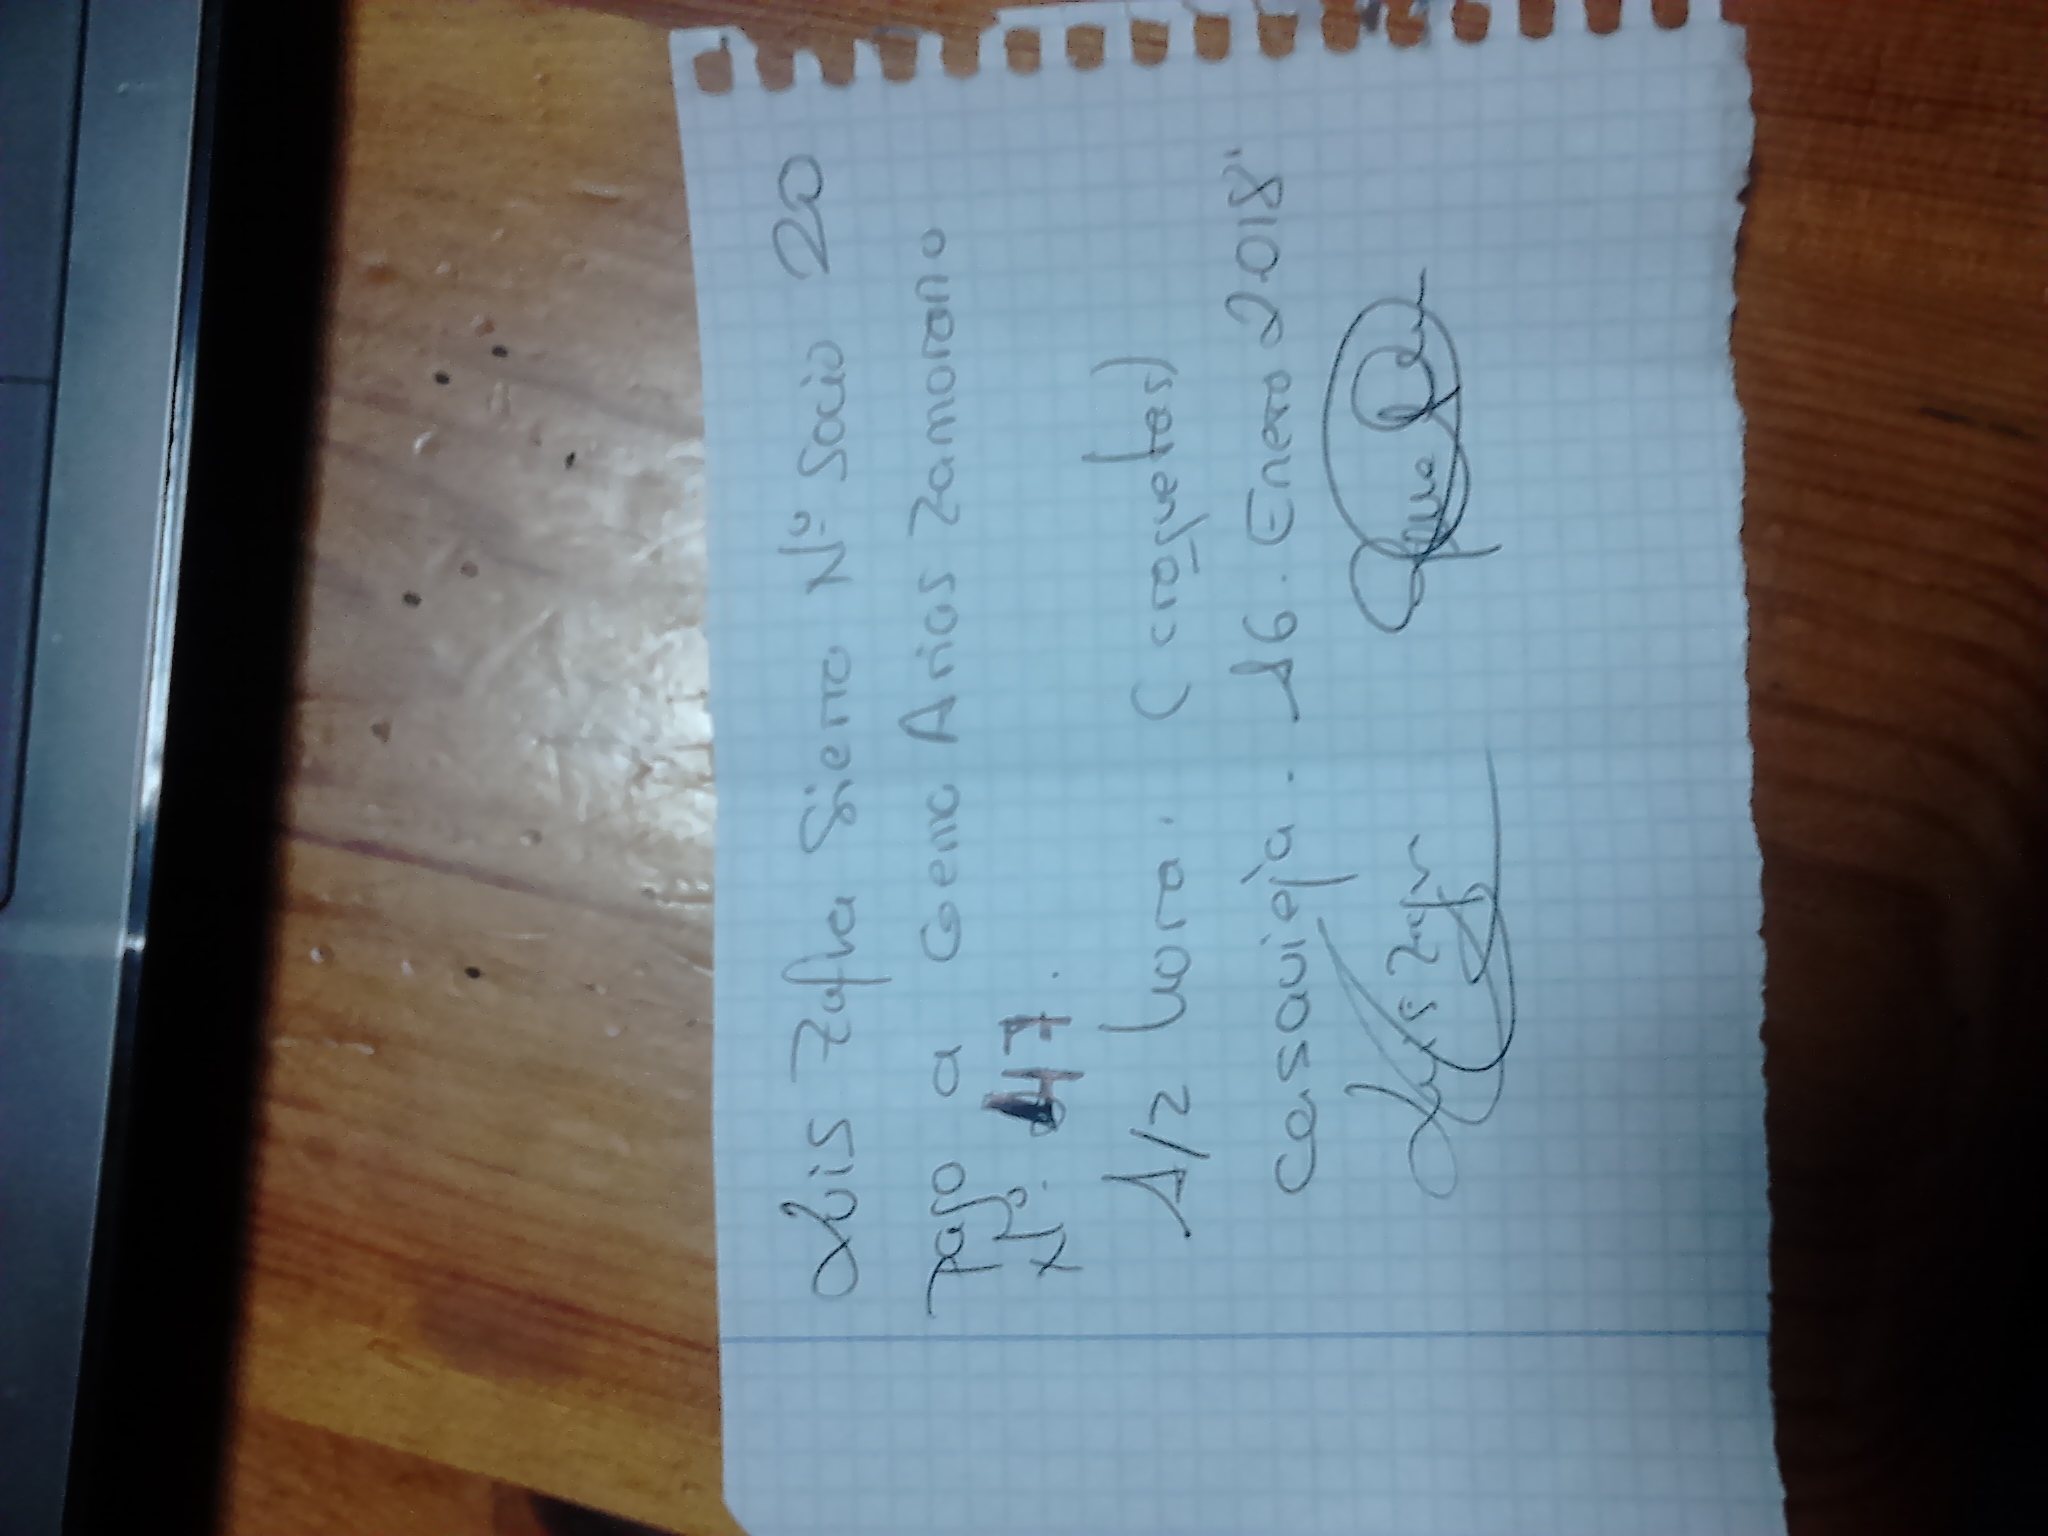 Luis Zafra Sierra Nº Socio 20
pago a Gema Años Zamorano
Nº. 47.
1/2 hora. (croquetas)
Casavieja. 16. Enero 2018
Luis Zafra